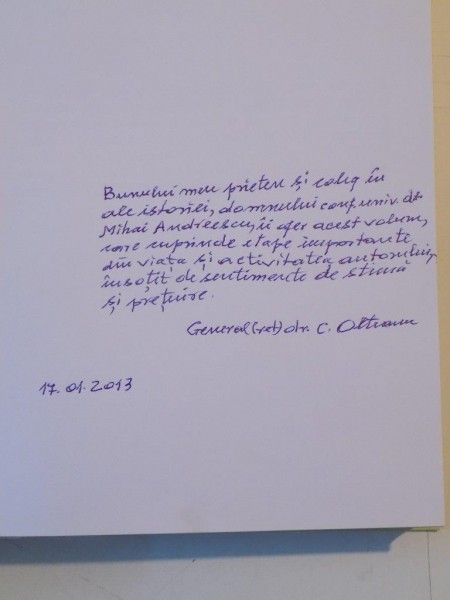 Bunului meu prieten și coleg în
ale istoriei, domnului conf. univ. dr.
Mihai Andreescu, îi ofer acest volum,
care cuprinde etape importante
din viața și activitatea autorului,
însoțit de sentimente de stimă
și prețuire.
General (ret) dr. C. Olteanu
17.01.2013